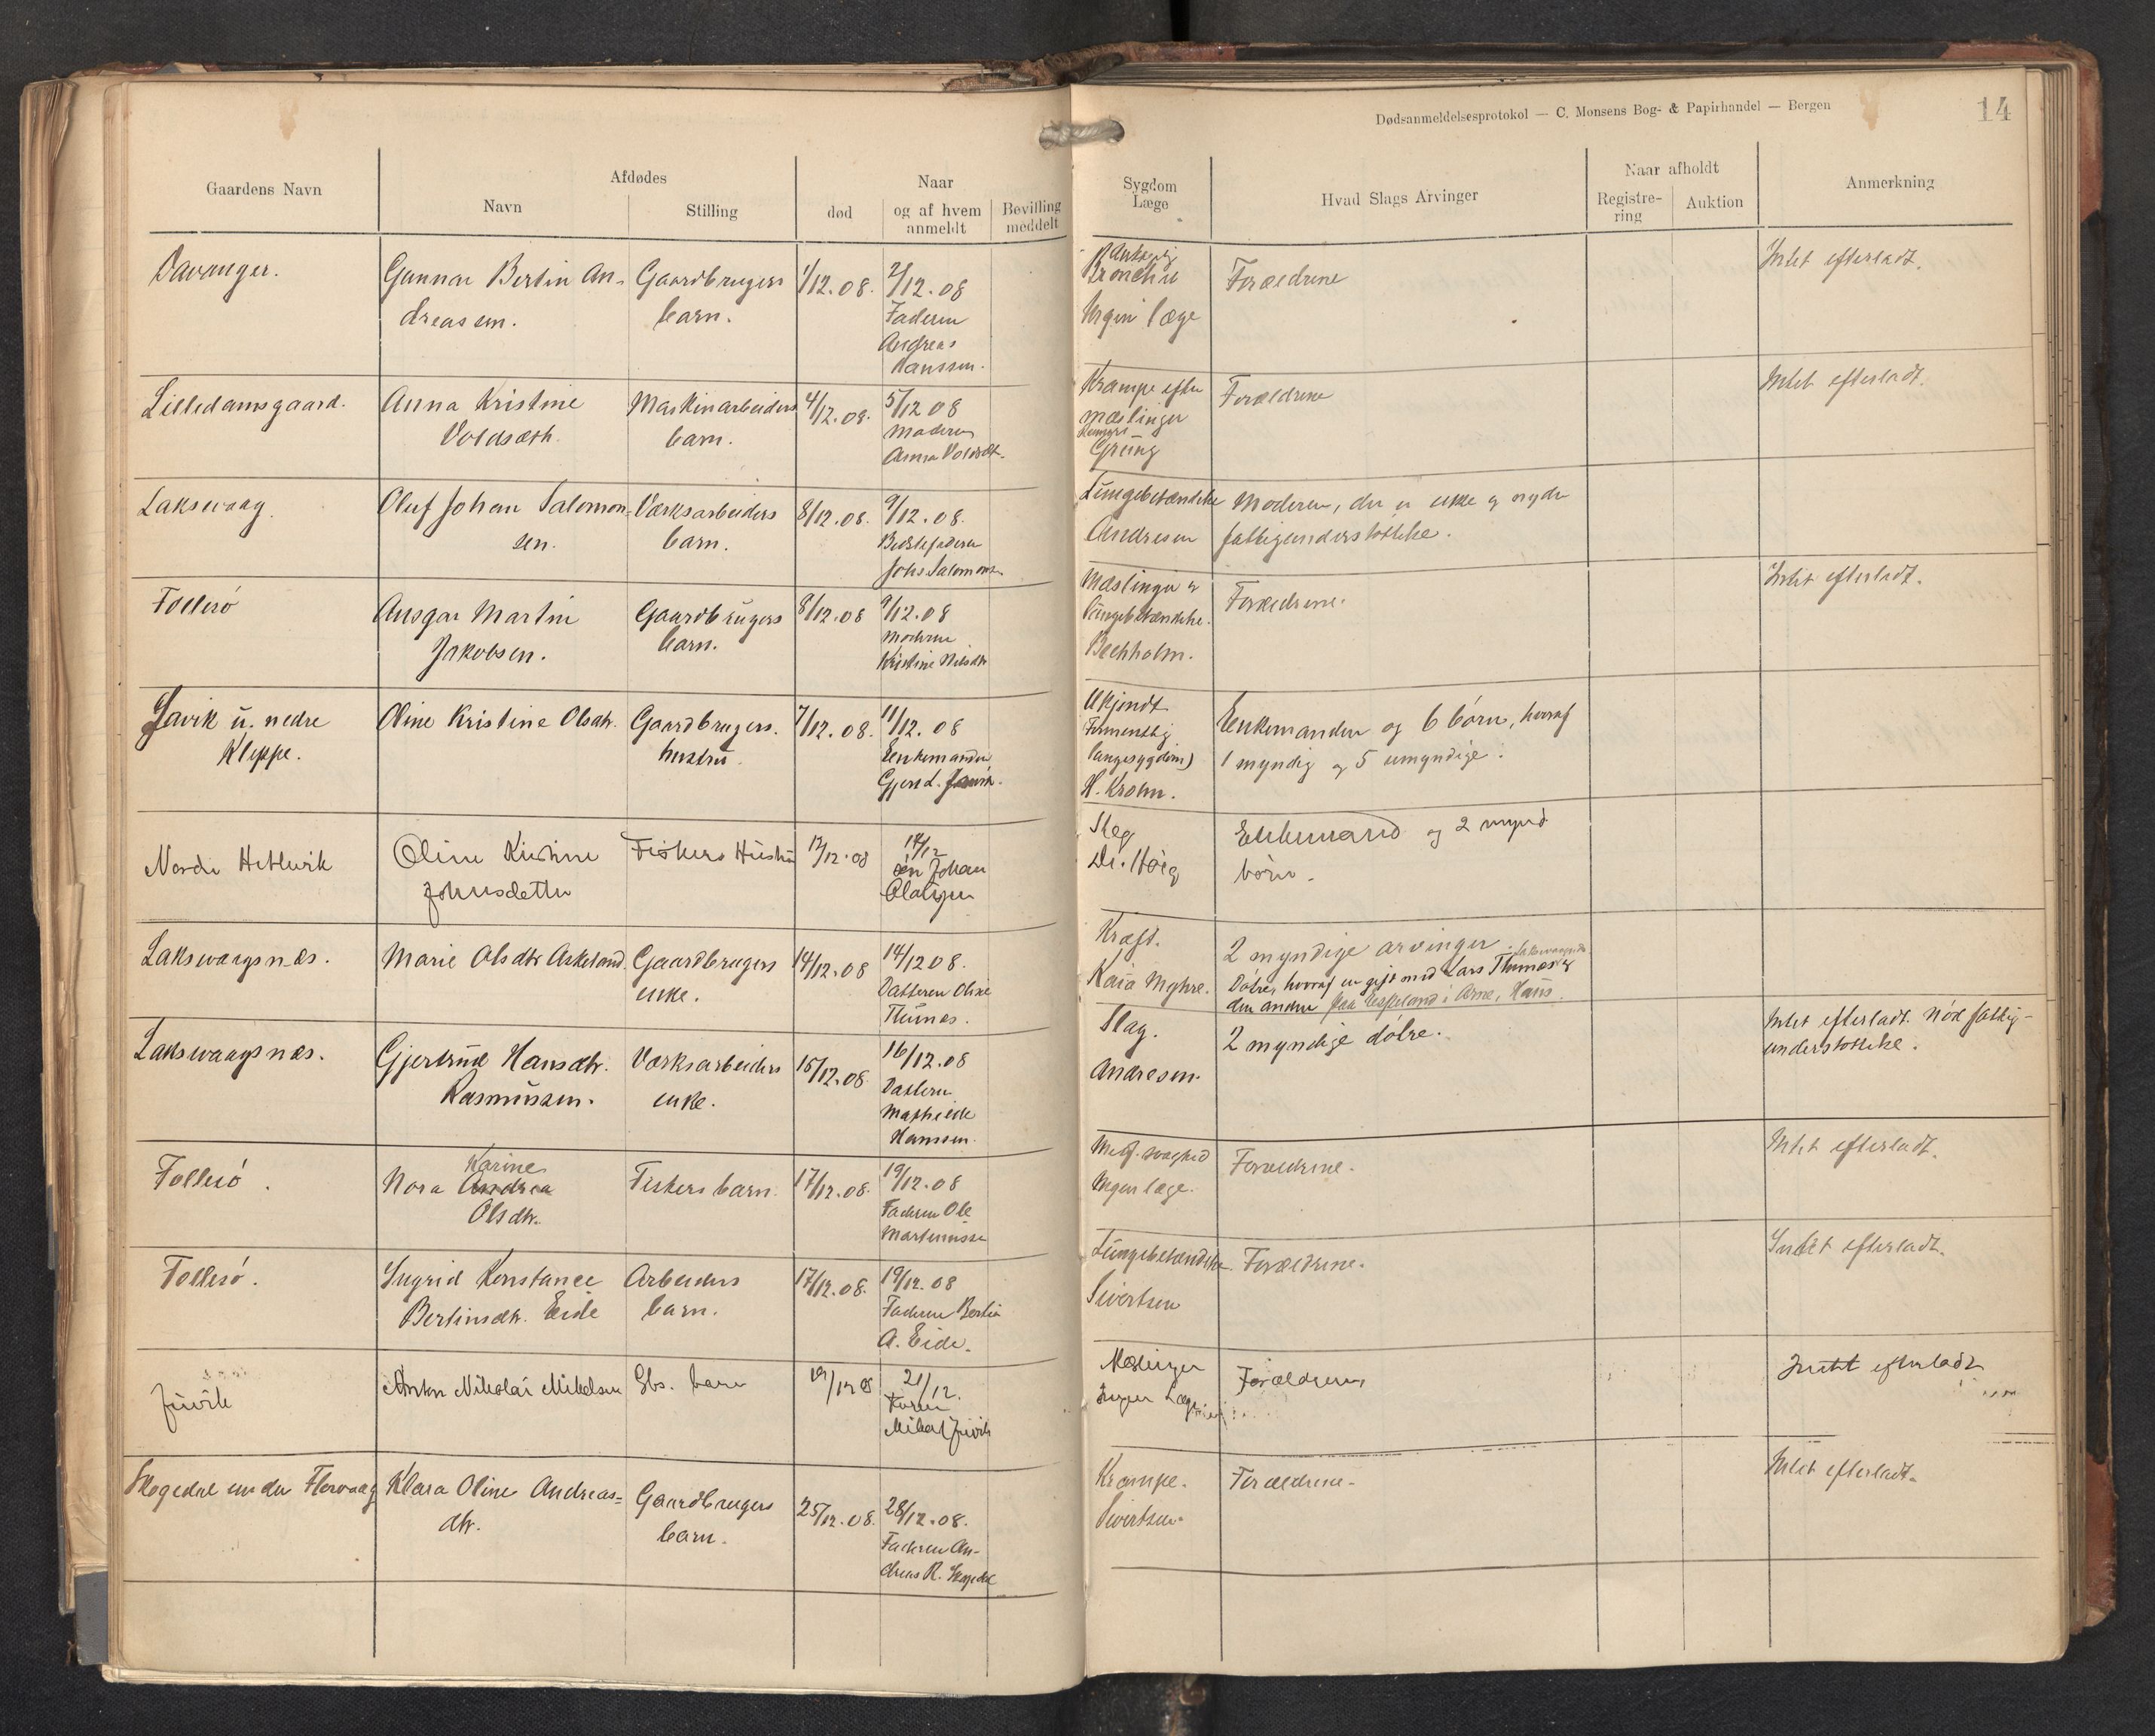 Dødsanmeldelsesprotokol — C. Monsens Bog- & Papirhandel — Bergen
14
Gaardens Navn
Afdødes
Navn
Stilling
død
Naar
og af hvem
anmeldt
Bevilling
meddelt
Sygdom
Læge
Hvad Slags Arvinger
Naar afholdt
Registre-
ring
Auktion
Anmerkning
Davanger.
Gunnar Bertin An-
dreassen.
Gaardbrugers
barn.
1/12.08.
2/12.08
Faderen
Andreas
Hanssen.
Bronchit
Ingen læge
Forældrene
Intet efterladt.
Lilledamsgaard.
Anna Kristine
Voldsæth.
Maskinarbeiders
barn.
4/12.08.
5/12 08
Moderen
Anna Voldsæth.
Krampe efter
mæslinger
Grüng
Forældrene
Intet efterladt.
Laksevaag.
Oluf Johan Salomon-
sen.
Værksarbeiders
barn.
8/12.08.
9/12.08.
Bedstefaderen
Johs Salomonsen
Lungebetændelse
Andresen
Moderen, der er enke og nyder
fattigunderstøttelse.
Follesø
Ansgar Martin
Jakobsen.
Gaardbrugers
barn.
8/12.08
9/12.08
Moderen
Kristine Nilsdtr
Mæslinger &
lungebetændelse.
Bechholm.
Forældrene.
Intet efterladt.
Javik u. nedre
Kleppe.
Oline Kristine Olsdtr.
Gaardbrugers.
hustru.
7/12.08.
11/12.08
Enkemanden
Gjert L. Javik.
Ukjendt
(formentlig
lungesygdom)
H. Krohn.
Enkemanden og 6 børn, hvoraf
1 myndig og 5 umyndige.
Nordre Hetlevik
Oline Kirstine
Johnsdatter
Fiskers Hustru
12/12.08
14/12
søn Johan
Olai
Slag
Dr. Høeg
Enkemand og 2 mynd
børn.
Laksevaagsnæs.
Marie Olsdtr Askeland.
Gaardbrugers
enke.
14/12.08
14/12 08.
Datteren Oline
Thunæs.
Kræft.
Kaia Myhre.
2 myndige arvinger.
Døtre, hvoraf en gift med Lars Thunæs &
den anden paa Espeland i Arne, Haus.
Laksevaagsnæs.
Gjertrud Hansdtr.
Rasmussen.
Værksarbeiders
enke.
15/12.08
16/12.08
Datteren
Mathilde
Hanssen.
Slag.
Andresen.
2 myndige døtre.
Intet efterladt. Nød fattig-
understøttelse.
Follesø.
Karine
Nora Andrea
Olsdtr.
Fiskers barn.
17/12.08.
19/12.08
Faderen Ole
Martinussen
Medf. svaghed
Ingen læge.
Forældrene.
Intet efterladt.
Follesø.
Ingrid Konstance
Bertinsdtr. Eide
Arbeiders
barn.
17/12.08.
19/12.08
Faderen Bertin
A. Eide.
Lungebetændelse
Sivertsen
Forældrene.
Intet efterladt.
Juvik
Anton Nikolai Mikelsen
Gbs. barn
19/12 08
21/12.
Mikal Juvik
Mæslinger
Ingen Læge
Forældrene
Intet efterladt
Skogedal under Florvaag
Klara Oline Andreas-
dtr.
Gaardbrugers
barn.
25/12.08.
28/12.08.
Faderen An-
dreas R. Skogedal
Krampe.
Sivertsen.
Forældrene.
Intet efterladt.